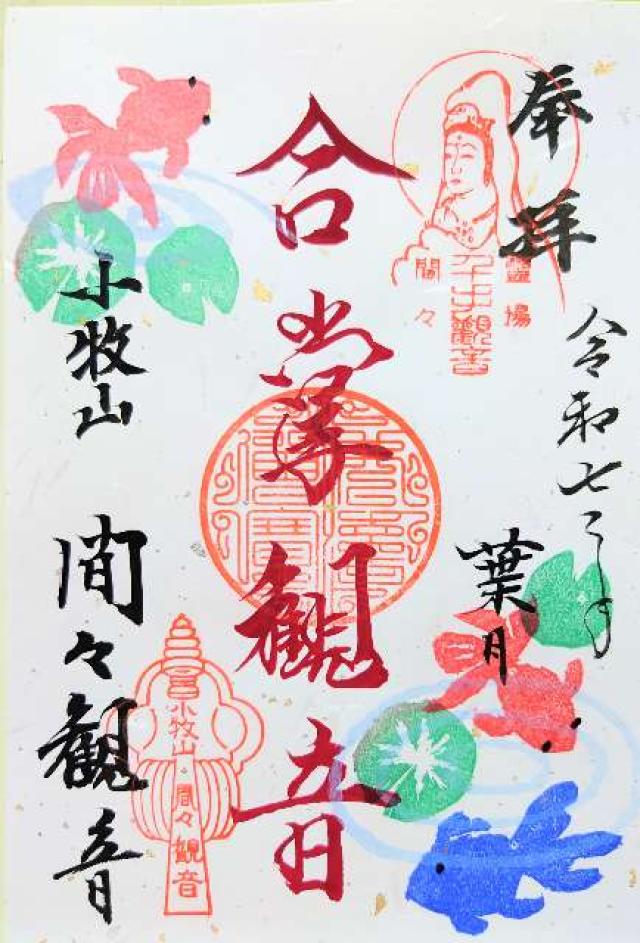 奉拝
令和七年
葉月
合掌観音
小牧山
間々観音
霊場
千手観音
間々
小牧山
間々観音